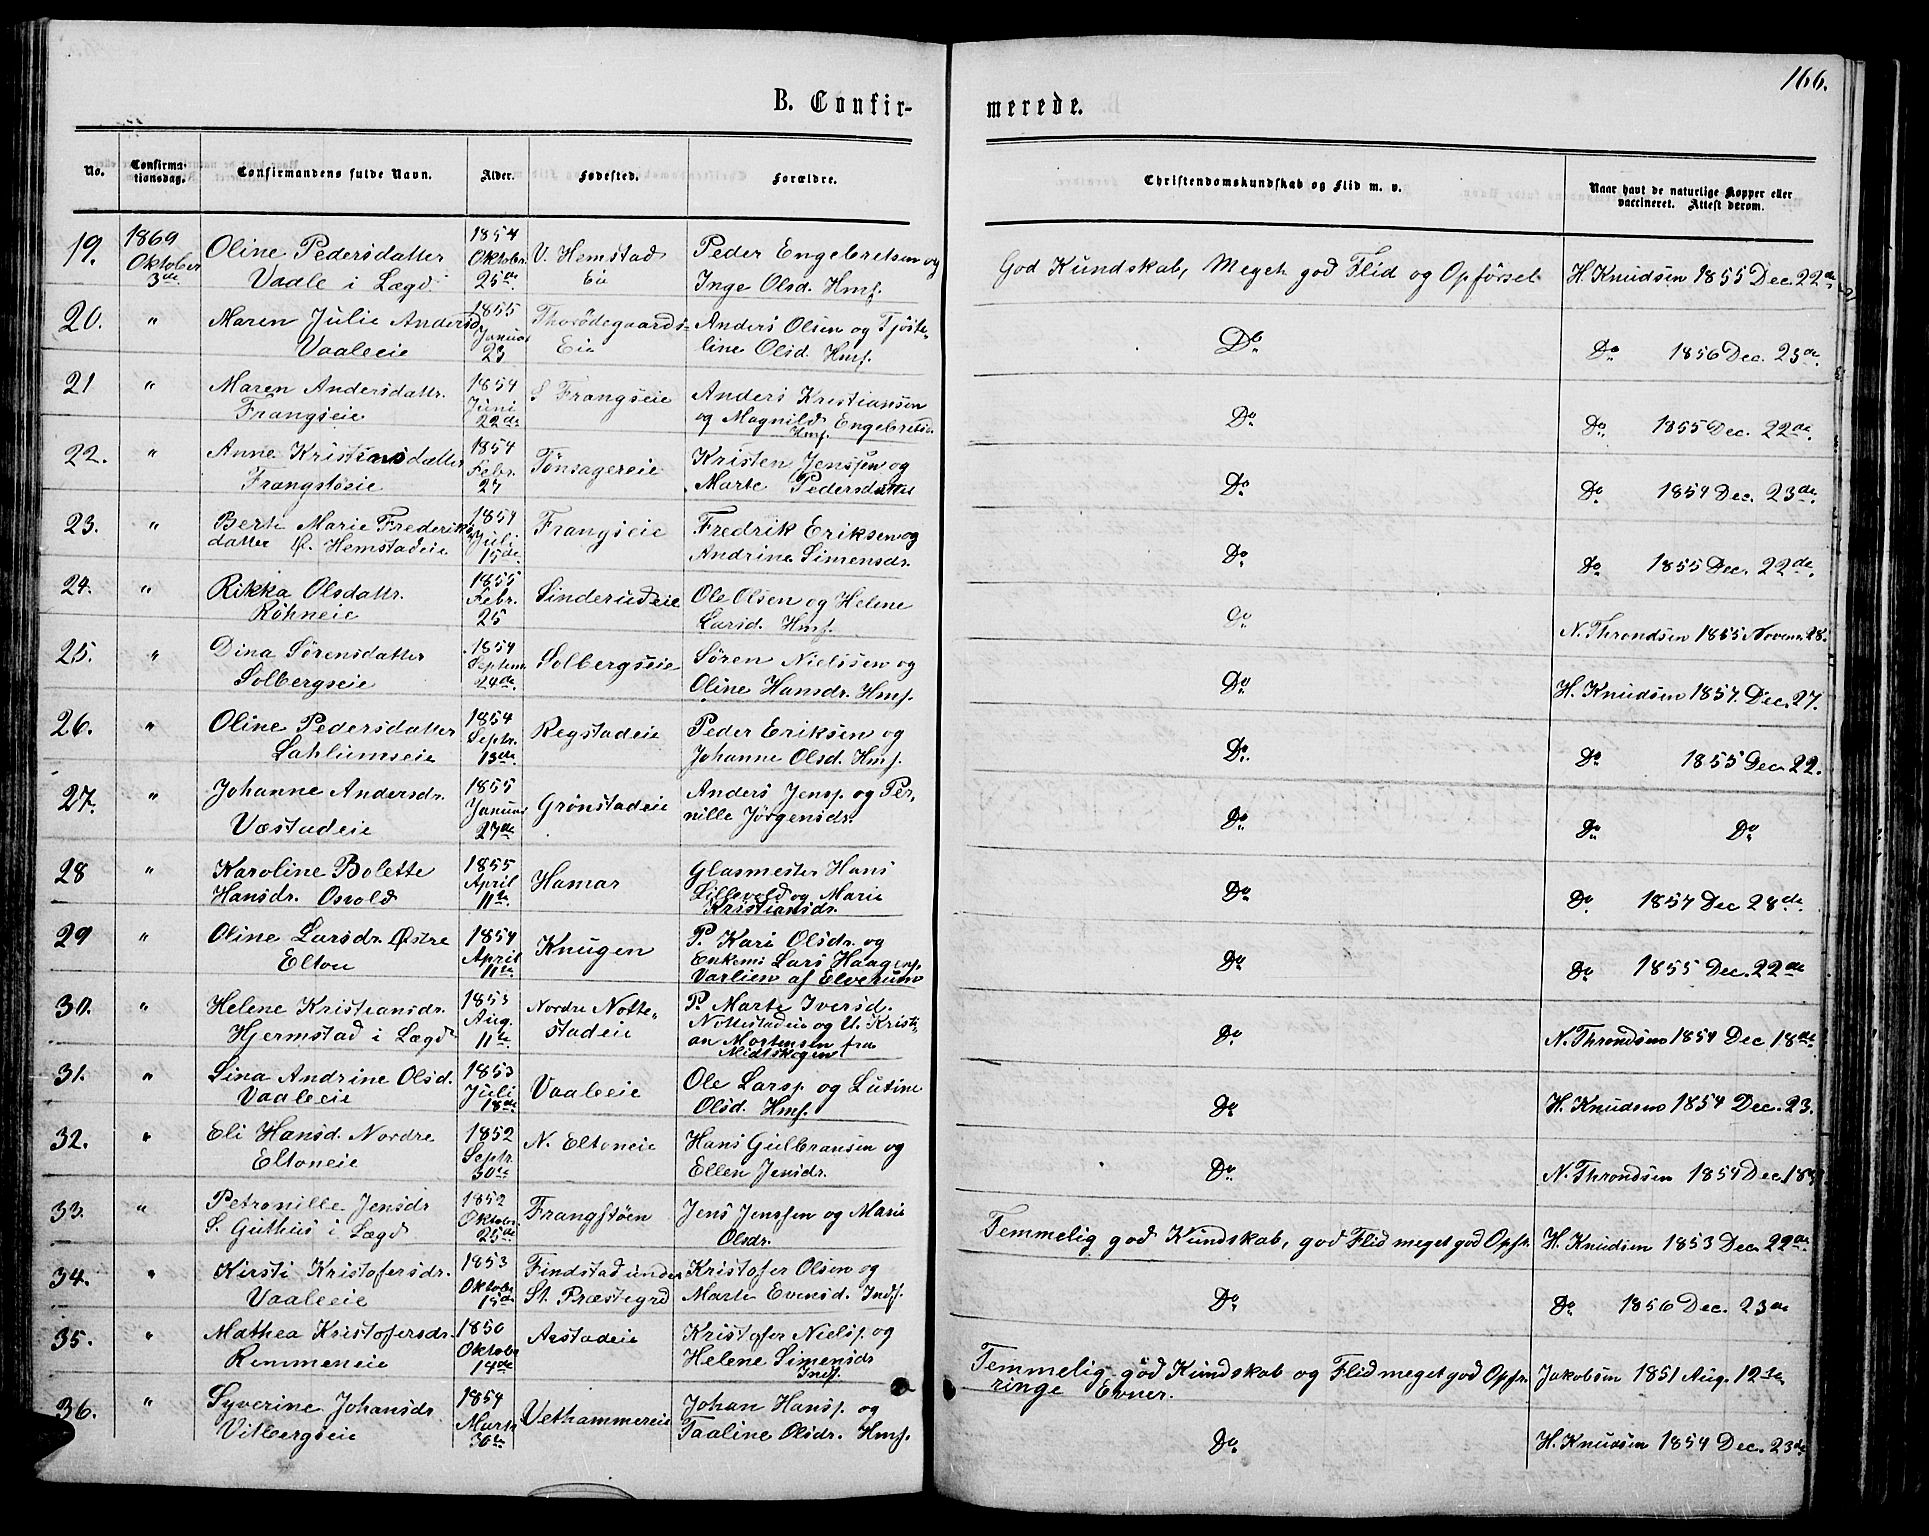 166.
B. Confirmerede.
No. Confirmationsdag. Confirmandens fulde Navn. Alder. Fødested. Forældre. Christendomskundskab og Flid m. v. Naar havt de naturlige Kopper eller vaccineret. Attest derom.
19. 1869 Oktober 3de Oline Pedersdatter Vaale i Lægd 1854 Oktobr. 25de V. Hemstad Eie Peder Engebretsen og Inge Olsd. Hmf. God Kundskab, Meget god Flid og Opførsel H. Knudsen 1855 Dec. 22de
20. " Maren Julie Andersd. Vaaleeie 1855 Januar 23 Thorødegaards- Eie Anders Olsen og Tjøste- line Olsd. Hmf. Do Do 1856 Dec. 23de.
21 " Maren Andersdattr. Frangseie 1854 Juni 22de S Frangseie Anders Kristiansen og Magnild Engebretsd. Hmf. Do Do 1855 Dec. 22de.
22. " Anne Kristinsdatter Frangstøeie 1854 Febr. 27 Tønsagereie Kristen Jenssen og Marte Pedersdatter Do Do 1854 Dec. 23de.
23. " Berte Marie Frederiks datter Ø. Hemstadeie 1854 Juli 15de Frangseie Fredrik Eriksen og Andrine Simensdr. Do Do 1855 Dec. 22de.
24. " Rikka Olsdattr. Røhneie 1855 Febr. 25 Sinderudeie Ole Olsen og Helene Larsd. Hmf. Do N. Throndsen 1855 Novem. 28.
25. " Dina Sørensdatter Solbergseie 1854 Septem. 24de. Solbergseie Søren Nielssen og Oline Hansdr. Hmf. Do H. Knudsen 1857. Dec. 27.
26. " Oline Pedersdatter Sahlumseie 1854 Septr. 13de Regstadeie Peder Eriksen og Johanne Olsd. Hmf. Do. Do 1855 Dec. 22.
27. " Johanne Andersdr. Væstadeie 1855 Januar 27de Grønstadeie Anders Jensp. og Per- nille Jørgensdr. Do Do Do
28 " Karoline Bolette Hansdr. Osvold 1855 April 11te Hamar Glasmester Hans Lillevold og Marie Kristiansdr. Do Do 1857 Dec 28de.
29 " Oline Larsdr. Østre Elton 1854 April 11te Knugen P. Kari Olsdr. og Enkem. Lars Haagens. Varlien af Elverum Do Do 1855 Dec. 22de
30. " Helene Kristiansdr. Hjermstad i Lægd 1853 Aug. 11te Nordre Notte- stadeie P. Marte Iversd. Nottestadeie og U. Kristi- an Mortensen fra Midtskogen Do N. Throndsen 1854 Dec. 18de.
31. " Sina Andrine Olsd. Vaaleeie 1853 Juli 18de Vaaleeie Ole Larsp og Lutine Olsd. Hmf. Do H. Knudsen 1854 Dec. 23.
32. " Eli Hansd. Nordre Eltoneie 1852 Septr. 30te N. Eltoneie Hans Gulbransen og Ellen Jensdr. Do N. Throndsen 1854 Dec. 18
33. " Petronille Jensdr S. Guthus i Lægd 1852 Oktobr. 25de Frangstøen Jens Jenssen og Marie Olsdr. Temmelig god Kundskab, god Flid meget god Opfr. H. Knudsen 1853 Dec. 22de
34. " Kirsti Kristofersdr. Vaaleeie 1853 Oktober 15de Findstad under St. Præstegrd Kristofer Olsen og Marte Evensd. Indf. Do Do 1856 Dec. 23de
35. " Mathea Kristofersdr. Remmeneie 1850 Oktobr 14de Arstadeie Kristofer Nielsp. og Helene Simensdr Indf. Temmelig god Kundskab og Flid meget god Opfr. ringe Evner. Jakobsen 1851 Aug. 12te
36. " Syverine Johansdr. Vitbergseie 1854 Marts 30te Vethammereie Johan Hansp. og Taaline Olsdr. Hmf. Do H. Knudsen 1854 Dec. 23de